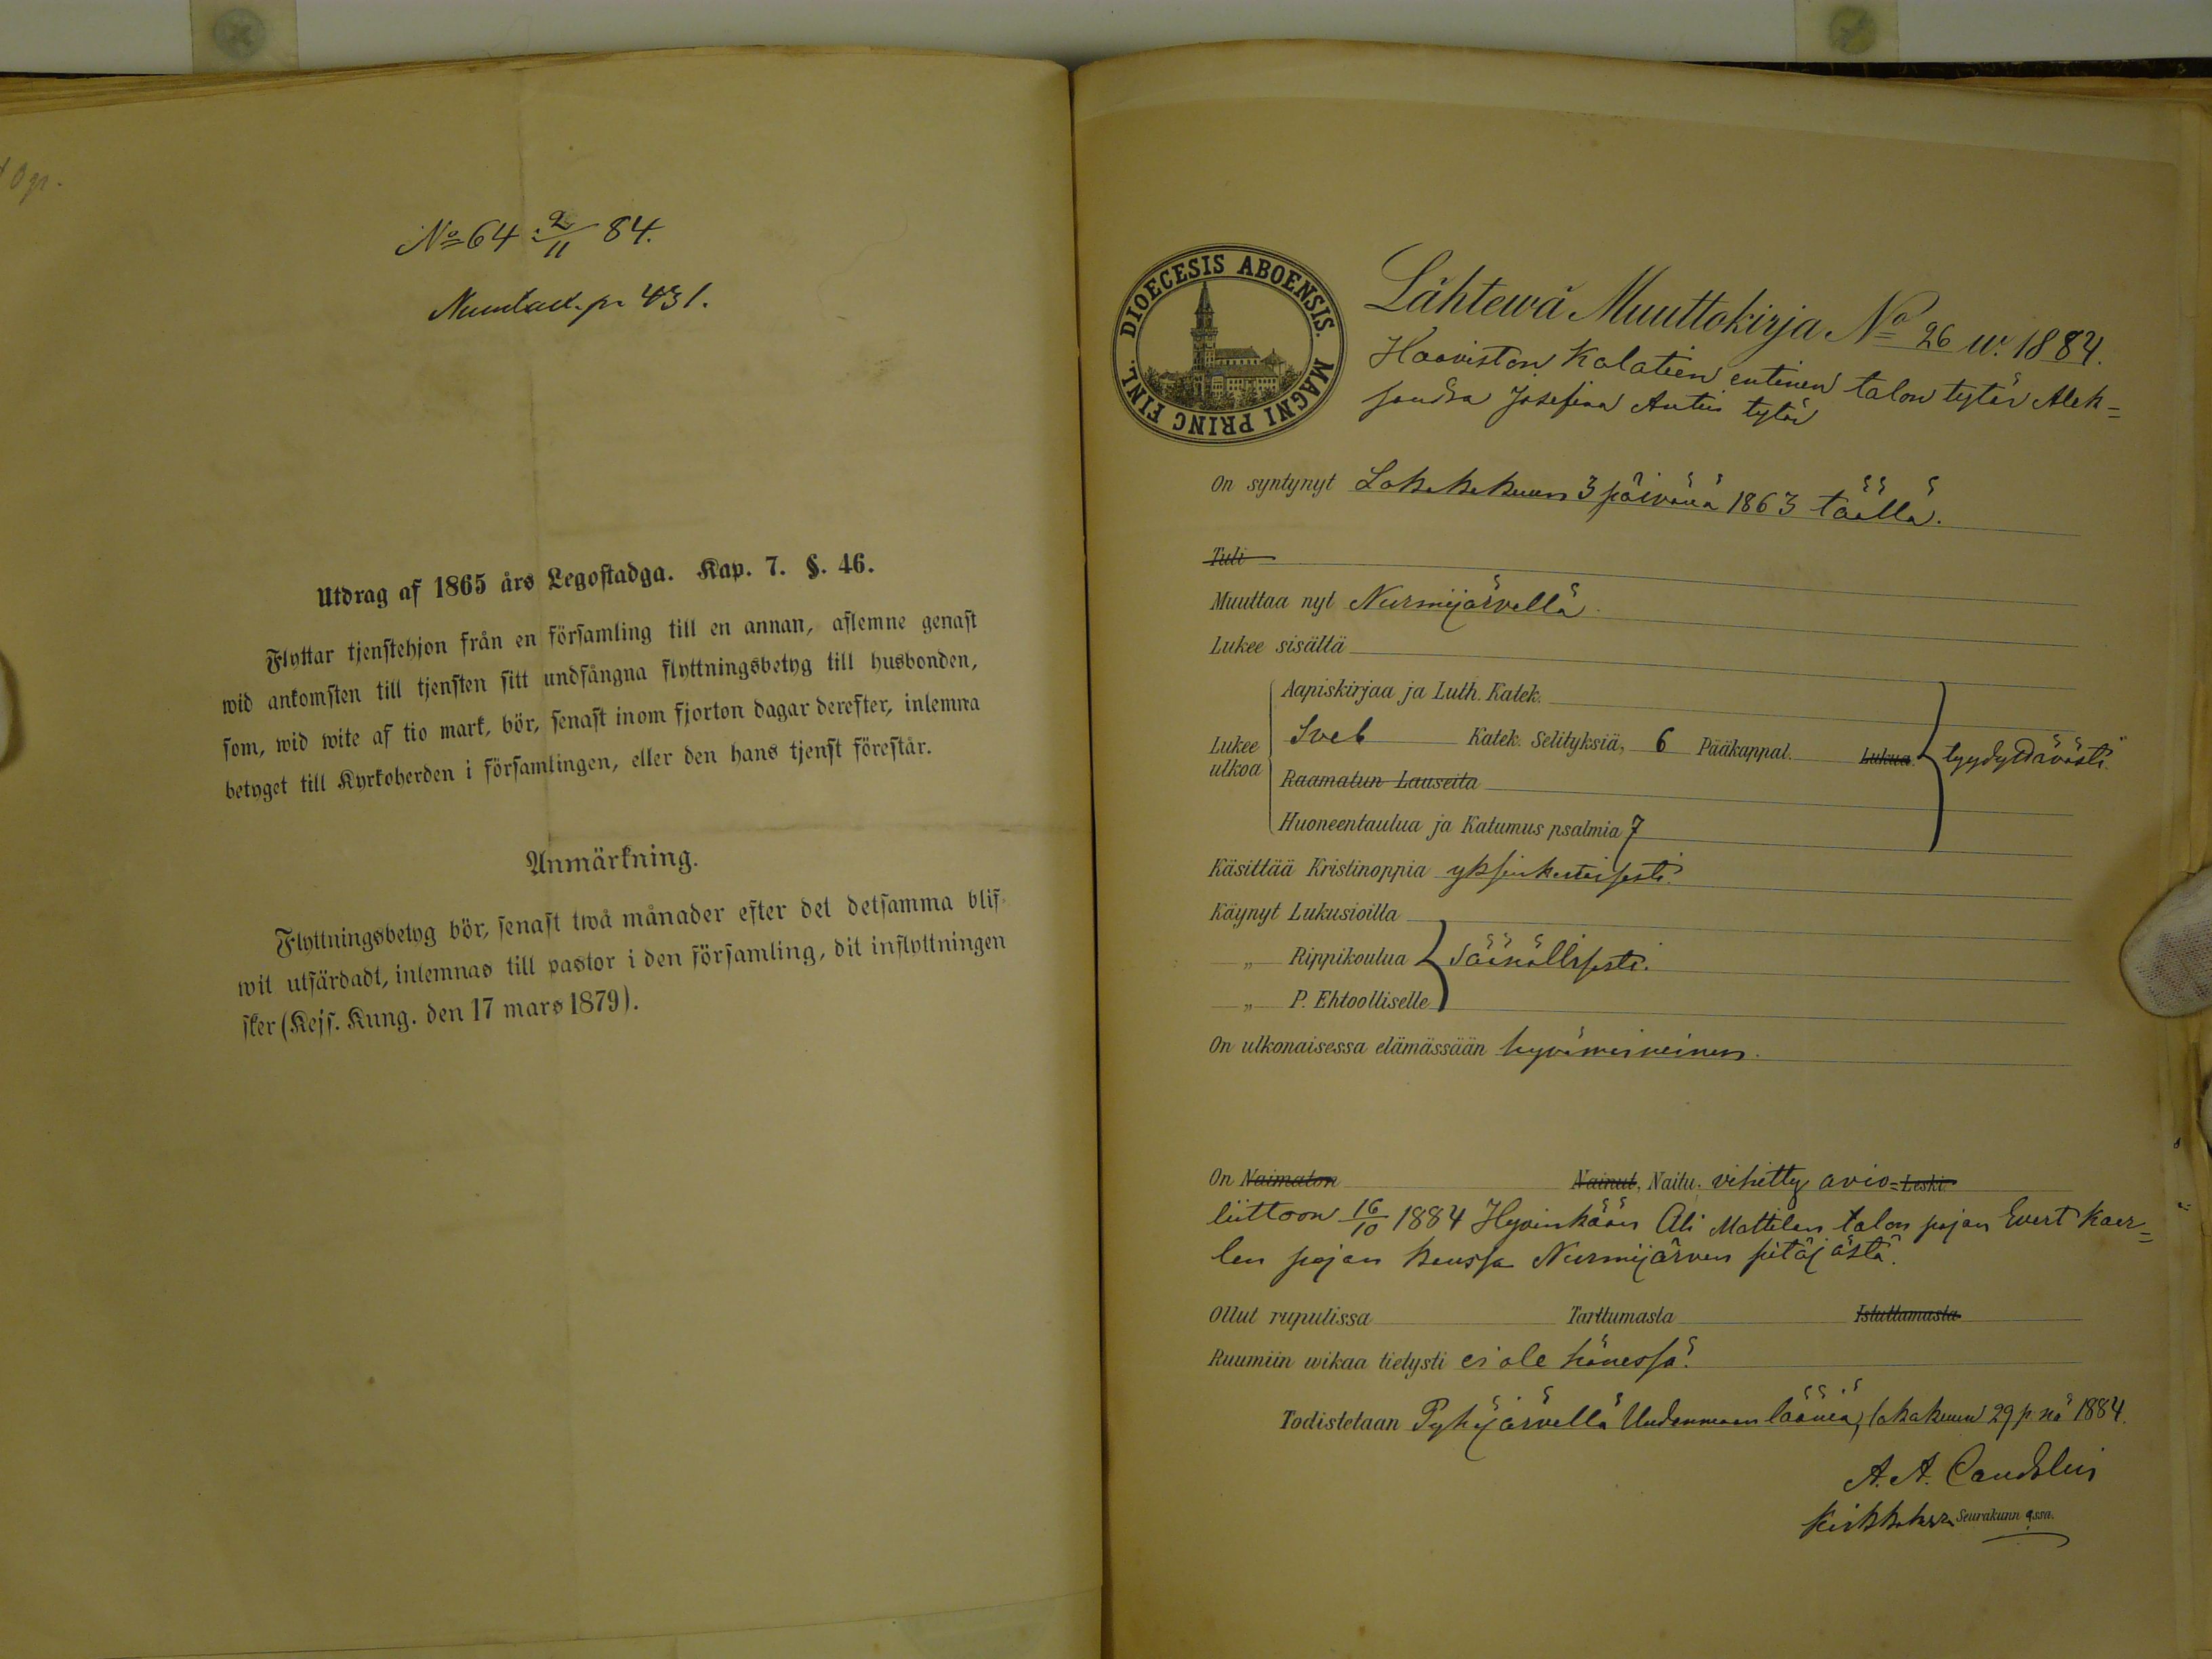 No 64 2/11 84.
431.
Utdrag af 1865 års Legostadga. Kap. 7. §. 46.
Flyttar tjenstehjon från en församling till en annan, aflemne genast
wid ankomsten till tjensten sitt undfångna flyttningsbetyg till husbonden,
som, wid wite af tio mark, bör, senast inom fjorton dagar derefter, inlemna
betyget till Kyrkoherden i församlingen, eller den hans tjenst förestår.
Anmärkning.
Flyttningsbetyg bör, senast twå månader efter det detsamma blif-
wit utfärdadt, inlemnas till pastor i den församling, dit inflyttningen
sker (Kejs. Kung. den 17 mars 1879).
DIOECESIS ABOENSIS. MAGNI PRINC FINL.
Lähtewä Muuttokirja No 26 w. 1884.
Haaviston Kolatien entinen talon tytär Alek=
sandra Josefina Antin tytär
On syntynyt Lokakekuun 3 päivänä 1863 täällä.
Tuli
Muuttaa nyt Nurmijärvellä.
Lukee sisältä
Aapiskirjaa ja Luth. Katek.
Lukee ulkoa Sveb Katek. Selityksiä, 6 Pääkappal. Lukua tyydyttävästi.
Raamatun Lauseita
Huoneentaulua ja Katumus psalmia 7
Käsittää Kristinoppia yksinkertaisesti.
Käynyt Lukusioilla
„ Rippikoulua Säänöllisesti.
„ P. Ehtoolliselle
On ulkonaisessa elämässään hyvämaineinen.
On Naimaton Nainut, Naitu. vihitty avio= Leski.
liittoon 16/10 1884 Hyvinkään Ali Mattilan talon pojan Evert Kaar=
len pojan kanssa Nurmijärven pitäjästä.
Ollut rupulissa Tarttumasta Istuttamasta
Ruumiin wikaa tietysti ei ole hänessä.
Todistetaan Pyhäjärvellä Uudenmaan lääniä, lokakuun 29 p. nä 1884.
A. A.
Seurakunn assa.